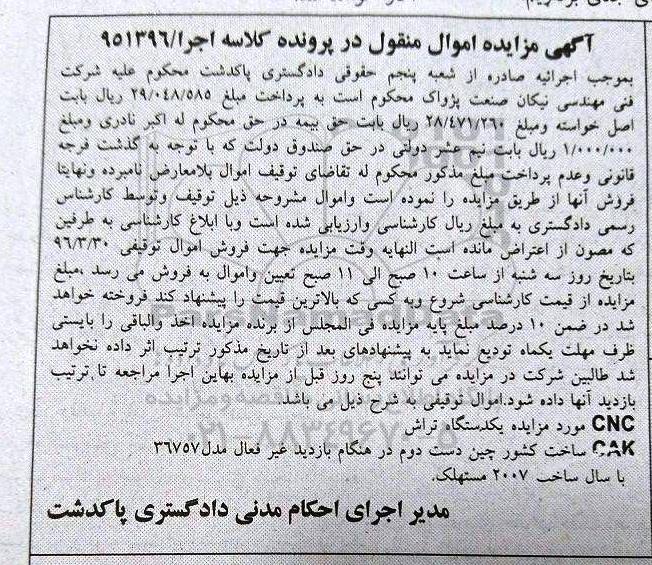 آگهی مزایده اموال منقول در پرونده کلاسه اجرا/۹۵۱۳۹۶
بموجب اجرائیه صادره از شعبه پنجم حقوقی دادگستری پاکدشت محکوم علیه شرکت
فنی مهندسی نیکان صنعت پژواک محکوم است به پرداخت مبلغ ۲۹/۰۴۸/۵۸۵ ریال بابت
اصل خواسته ومبلغ ۲۸/۴۷۱/۲۶۰ ریال بابت حق بیمه در حق محکوم له اکبر نادری ومبلغ
۱/۰۰۰/۰۰۰ ریال بابت نیم عشر دولتی در حق صندوق دولت که با توجه به گذشت فرجه
قانونی وعدم پرداخت مبلغ مذکور محکوم له تقاضای توقیف اموال بلامعارض نامبرده ونهایتا
فروش آنها از طریق مزایده را نموده است واموال مشروحه ذیل توقیف وتوسط کارشناس
رسمی دادگستری به مبلغ ریال کارشناسی وارزیابی شده است وبا ابلاغ کارشناسی به طرفین
که مصون از اعتراض مانده است النهایه وقت مزایده جهت فروش اموال توقیفی ۹۶/۳/۳۰
بتاریخ روز سه شنبه از ساعت ۱۰ صبح الی ۱۱ صبح تعیین واموال به فروش می رسد .مبلغ
مزایده از قیمت کارشناسی شروع وبه کسی که بالاترین قیمت را پیشنهاد کند فروخته خواهد
شد در ضمن ۱۰ درصد مبلغ پایه مزایده فی المجلس از برنده مزایده اخذ والباقی را بایستی
ظرف مهلت یکماه تودیع نماید به پیشنهادهای بعد از تاریخ مذکور ترتیب اثر داده نخواهد
شد طالبین شرکت در مزایده می توانند پنج روز قبل از مزایده بهاین اجرا مراجعه تا ترتیب
بازدید آنها داده شود.اموال توقیفی به شرح ذیل می باشد.
CNC مورد مزایده یکدستگاه تراش
CAK ساخت کشور چین دست دوم در هنگام بازدید غیر فعال مدل۳۶۷۵۷
با سال ساخت ۲۰۰۷ مستهلک.
مدیر اجرای احکام مدنی دادگستری پاکدشت
ParsNamadData